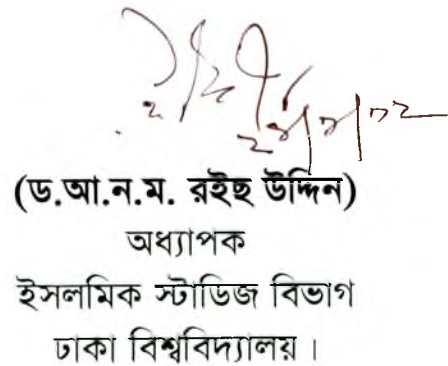 (ড.আ.ন.ম. রইছ উদ্দিন)
অধ্যাপক
ইসলমিক স্টাডিজ বিভাগ
ঢাকা বিশ্ববিদ্যালয়।